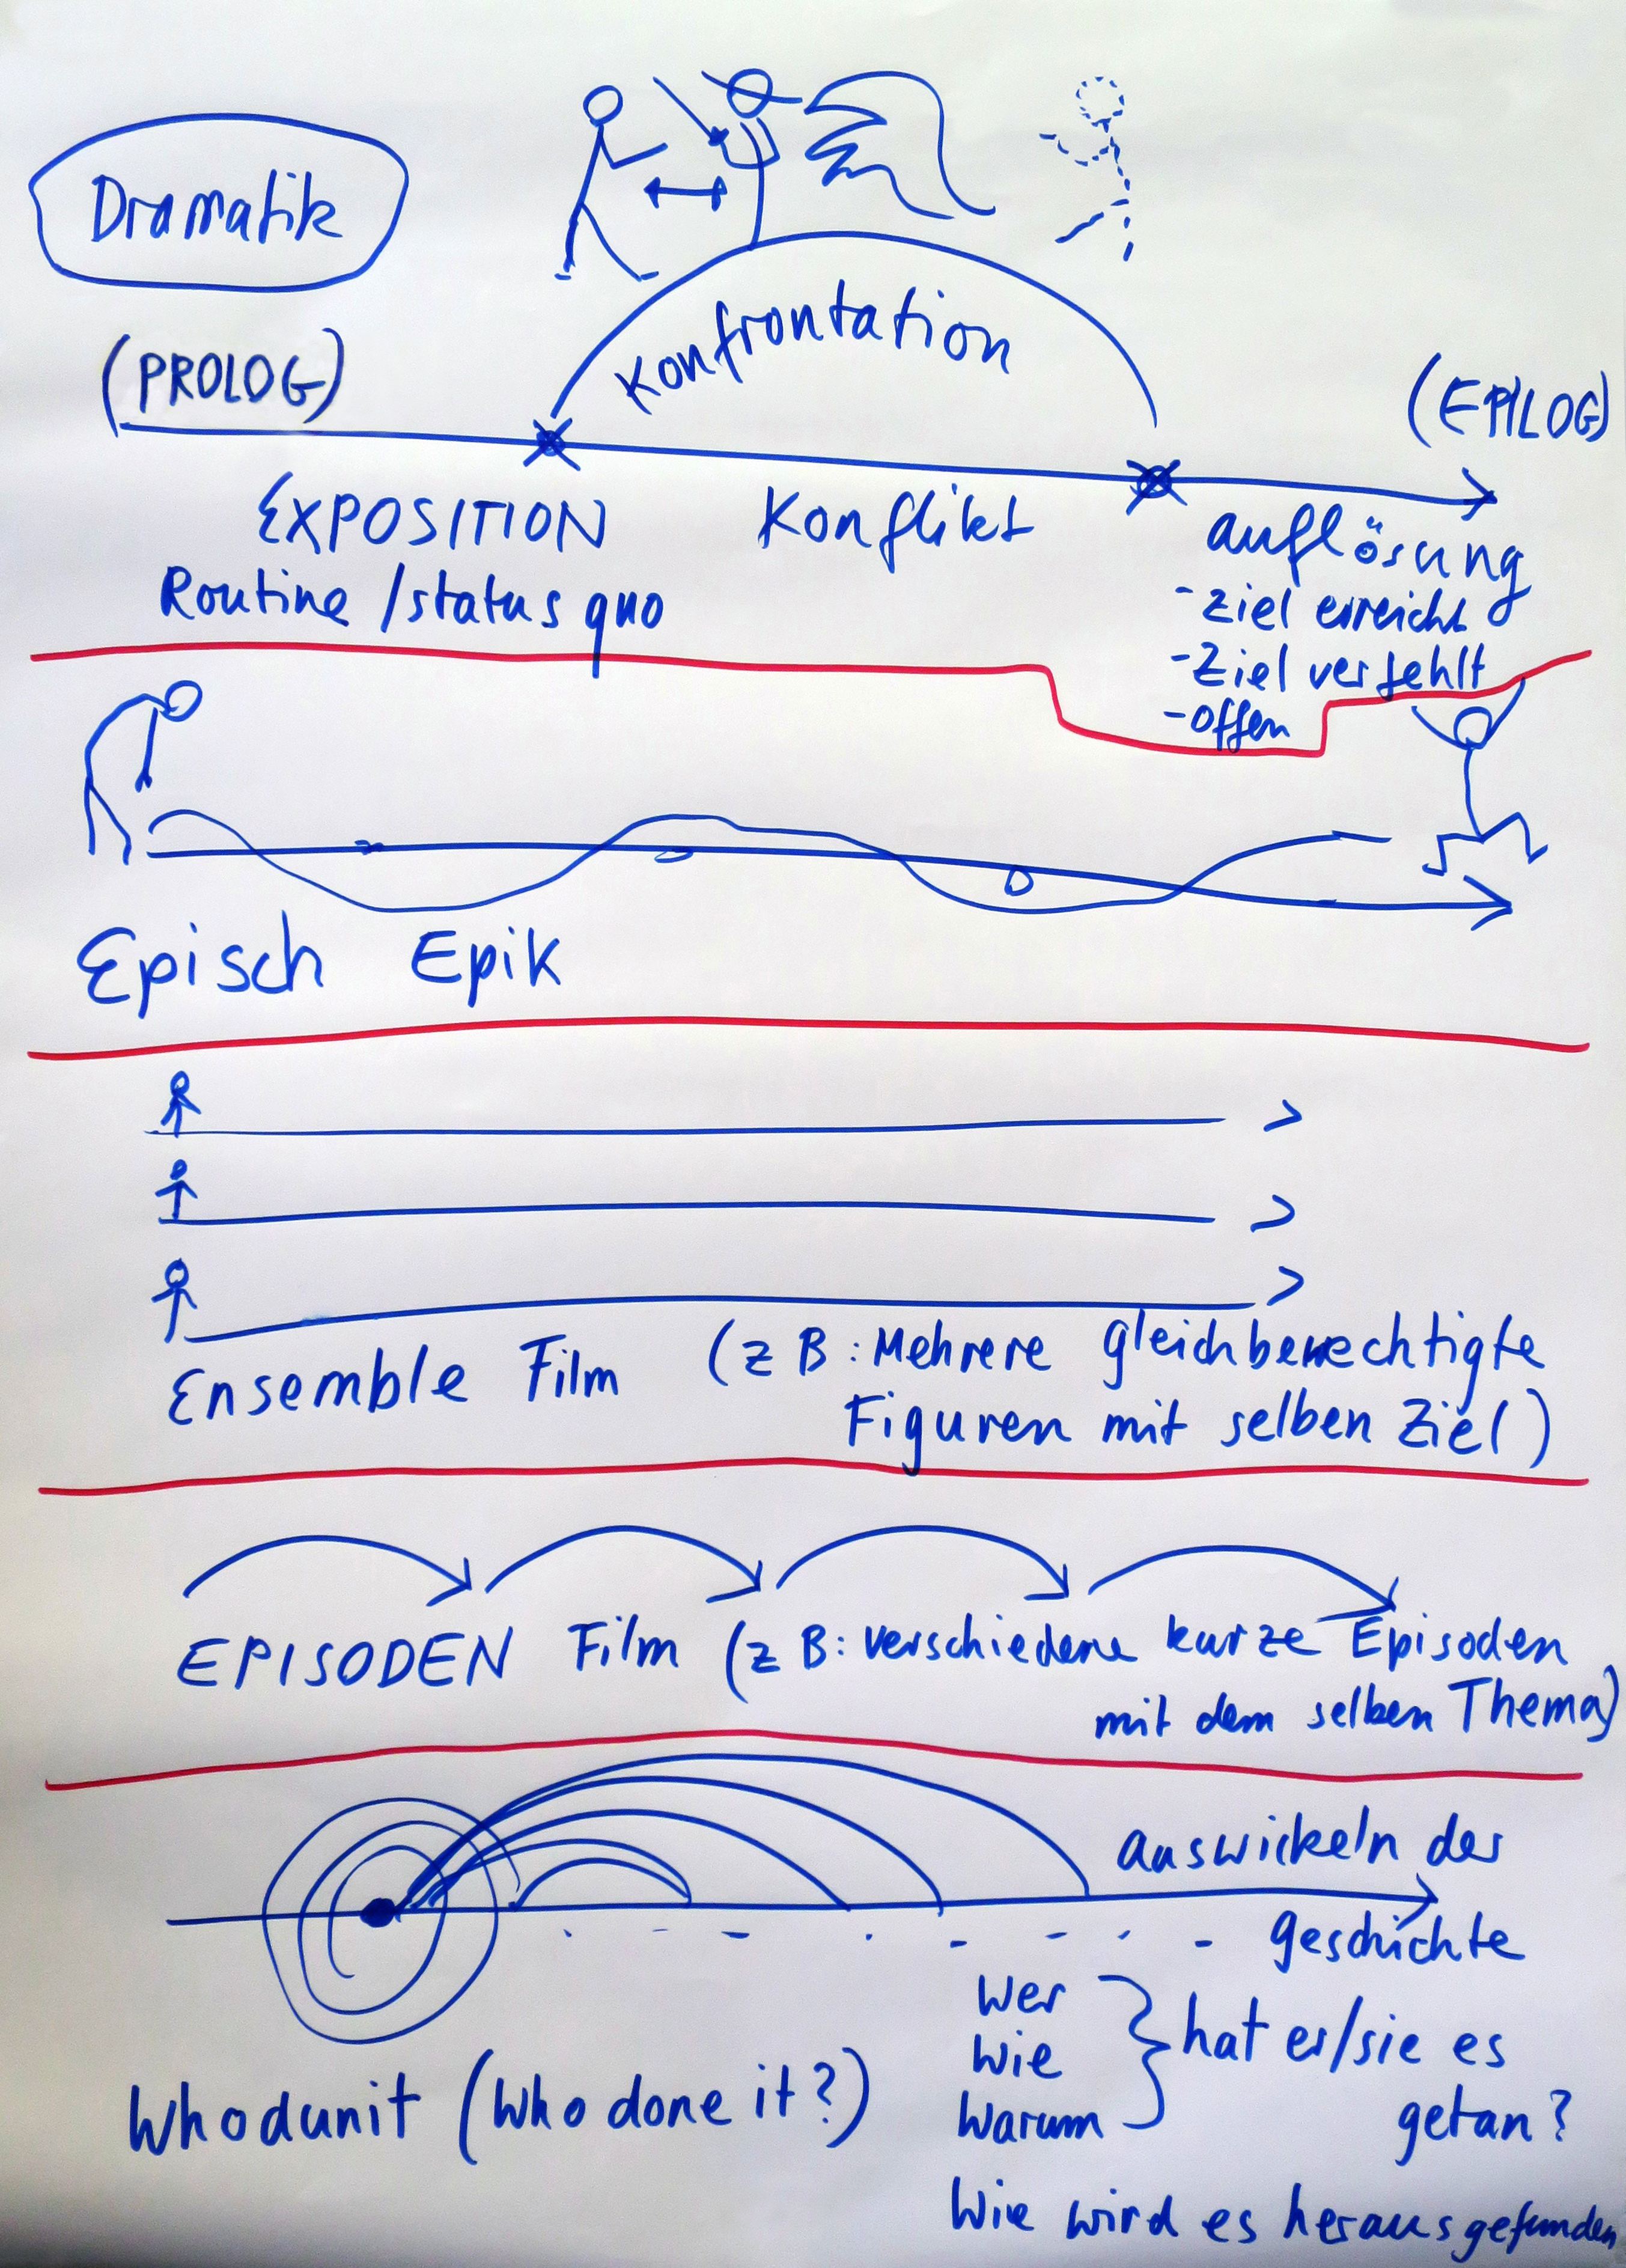 Dramatik
Konfrontation
(PROLOG)
(EPILOG)
EXPOSITION
Konflikt
auflösung
Routine / status quo
- Ziel erreicht
- Ziel verfehlt
- offen
Episch Epik
Ensemble Film (z B: Mehrere gleichberechtigte
Figuren mit selben Ziel)
EPISODEN Film (z B: verschiedene kurze Episoden
mit dem selben Thema)
auswickeln der
geschichte
Wer
Wie
Warum
hat er/sie es
getan?
Whodunit (Who done it?)
Wie wird es herausgefunden